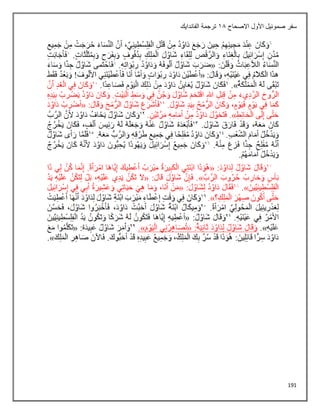 سفر صموئيل الأول الإصحاح ١٨ ترجمة الفاندايك
٦وَكَانَ عِنْدَ مَجِيئِهِمْ حِينَ رَجَعَ دَاوُدُ مِنْ قَتْلِ الْفِلِسْطِينِيِّ، أَنَّ النِّسَاءَ خَرَجَتْ مِنْ جَمِيعِ
مُدُنِ إِسْرَائِيلَ بِالْغِنَاءِ وَالرَّقْصِ لِلِقَاءِ شَاوُلَ الْمَلِكِ بِدُفُوفٍ وَبِفَرَحٍ وَبِمُثَلَّثَاتٍ. ٧فَأَجَابَتِ
النِّسَاءُ اللاَّعِبَاتُ وَقُلْنَ: «ضَرَبَ شَاوُلُ أُلُوفَهُ وَدَاوُدُ رِبْوَاتِهِ». ٨فَاحْتَمَى شَاوُلُ جِدًّا وَسَاءَ
هذَا الْكَلاَمُ فِي عَيْنَيْهِ، وَقَالَ: «أَعْطَيْنَ دَاوُدَ رِبْوَاتٍ وَأَمَّا أَنَا فَأَعْطَيْنَنِي الأُلُوفَ! وَبَعْدُ فَقَطْ
تَبْقَى لَهُ الْمَمْلَكَةُ». ٩فَكَانَ شَاوُلُ يُعَايِنُ دَاوُدَ مِنْ ذلِكَ الْيَوْمِ فَصَاعِدًا. ١٠وَكَانَ فِي الْغَدِ أَنَّ
الرُّوحَ الرَّدِيءَ مِنْ قِبَلِ اللهِ اقْتَحَمَ شَاوُلَ وَجُنَّ فِي وَسَطِ الْبَيْتِ. وَكَانَ دَاوُدُ يَضْرِبُ بِيَدِهِ
كَمَا فِي يَوْمٍ فَيَوْمٍ، وَكَانَ الرُّمْحُ بِيَدِ شَاوُلَ. ١١فَأَشْرَعَ شَاوُلُ الرُّمْحَ وَقَالَ: «أَضْرِبُ دَاوُدَ
حَتَّى إِلَى الْحَائِطِ». فَتَحَوَّلَ دَاوُدُ مِنْ أَمَامِهِ مَرَّتَيْنِ. ١٢وَكَانَ شَاوُلُ يَخَافُ دَاوُدَ لأَنَّ الرَّبَّ
كَانَ مَعَهُ، وَقَدْ فَارَقَ شَاوُلَ. ١٣فَأَبْعَدَهُ شَاوُلُ عَنْهُ وَجَعَلَهُ لَهُ رَئِيسَ أَلْفٍ، فَكَانَ يَخْرُجُ
وَيَدْخُلُ أَمَامَ الشَّعْبِ. ١٤وَكَانَ دَاوُدُ مُفْلِحًا فِي جَمِيعِ طُرُقِهِ وَالرَّبُّ مَعَهُ. ١٥فَلَمَّا رَأَى شَاوُلُ
أَنَّهُ مُفْلِحٌ جِدًّا فَزِعَ مِنْهُ. ١٦وَكَانَ جَمِيعُ إِسْرَائِيلَ وَيَهُوذَا يُحِبُّونَ دَاوُدَ لأَنَّهُ كَانَ يَخْرُجُ
وَيَدْخُلُ أَمَامَهُمْ.
١٧وَقَالَ شَاوُلُ لِدَاوُدَ: «هُوَذَا ابْنَتِي الْكَبِيرَةُ مَيْرَبُ أُعْطِيكَ إِيَّاهَا امْرَأَةً. إِنَّمَا كُنْ لِي ذَا
بَأْسٍ وَحَارِبْ حُرُوبَ الرَّبِّ». فَإِنَّ شَاوُلَ قَالَ: «لاَ تَكُنْ يَدِي عَلَيْهِ، بَلْ لِتَكُنْ عَلَيْهِ يَدُ
الْفِلِسْطِينِيِّينَ». ١٨فَقَالَ دَاوُدُ لِشَاوُلَ: «مَنْ أَنَا، وَمَا هِيَ حَيَاتِي وَعَشِيرَةُ أَبِي فِي إِسْرَائِيلَ
حَتَّى أَكُونَ صِهْرَ الْمَلِكِ؟». ١٩وَكَانَ فِي وَقْتِ إِعْطَاءِ مَيْرَبَ ابْنَةِ شَاوُلَ لِدَاوُدَ أَنَّهَا أُعْطِيَتْ
لِعَدْرِيئِيلَ الْمَحُولِيِّ امْرَأَةً. ٢٠وَمِيكَالُ ابْنَةُ شَاوُلَ أَحَبَّتْ دَاوُدَ، فَأَخْبَرُوا شَاوُلَ، فَحَسُنَ
الأَمْرُ فِي عَيْنَيْهِ. ٢١وَقَالَ شَاوُلُ: «أُعْطِيهِ إِيَّاهَا فَتَكُونُ لَهُ شَرَكًا وَتَكُونُ يَدُ الْفِلِسْطِينِيِّينَ
عَلَيْهِ». وَقَالَ شَاوُلُ لِدَاوُدَ ثَانِيَةً: «تُصَاهِرُنِي الْيَوْمَ». ٢٢وَأَمَرَ شَاوُلُ عَبِيدَهُ: «تَكَلَّمُوا مَعَ
دَاوُدَ سِرًّا قَائِلِينَ: هُوَذَا قَدْ سُرَّ بِكَ الْمَلِكُ، وَجَمِيعُ عَبِيدِهِ قَدْ أَحَبُّوكَ. فَالآنَ صَاهِرِ الْمَلِكَ».
191